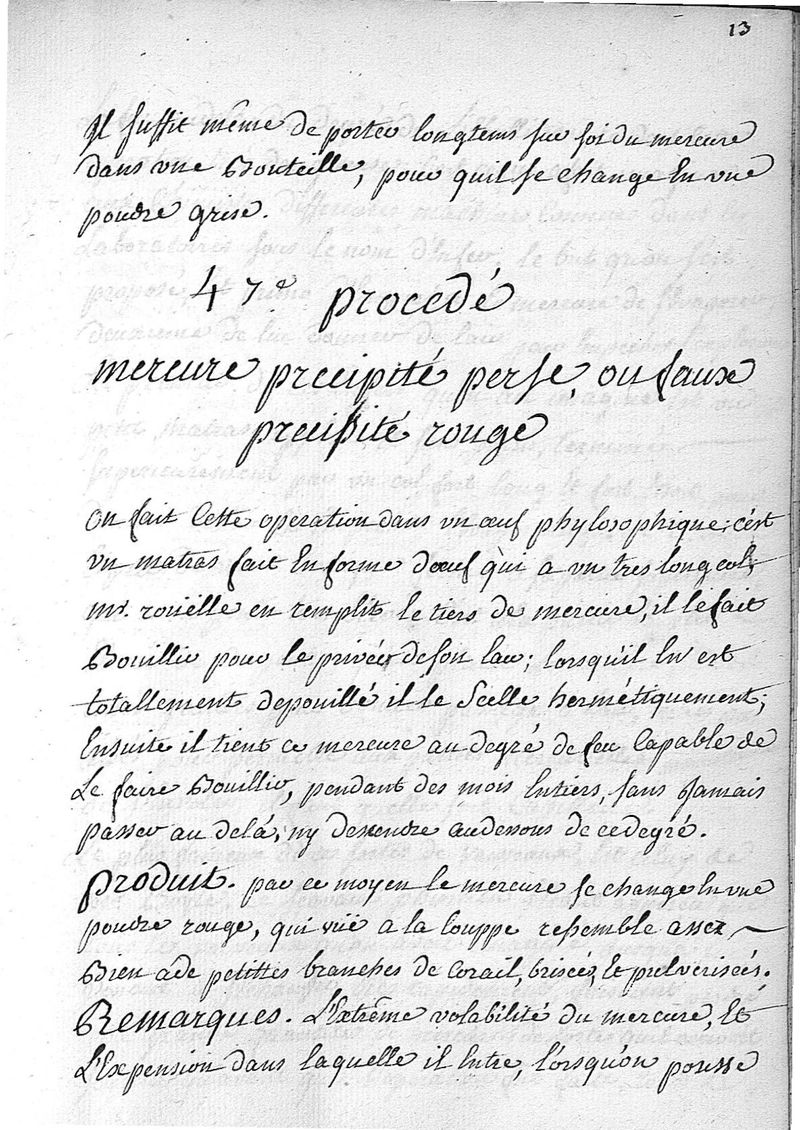 13
Il suffit même de porter longtems sur soi du mercure
dans vne Bouteille, pour quil se change En vne
poudre grise.
47e. procedé
mercure precipité perse, ou faux
precipité rouge
On fait Cette operation dans vn œuf phylosophique; c'est
vn matras fait En forme d'œuf qùi a vn tres long col,
mr. roüelle en remplit le tiers de mercure, il le fait
Boüillir pour le priver de son air; lorsqu'il En est
totallement depoüillé il le Scelle hermétiquement;
Ensuite il tient ce mercure au degré de feu Capable de
Le faire Boüillir, pendant des mois Entiers, sans Jamais
passer au delá, ny desendre audessous de ce degré.
produit. par ce moyen le mercure se change En vne
poudre rouge, qui vüe a la Louppe resemble assez
Bien a de petittes branches de Corail, brisées, Et pulverisées.
Remarques. L'Extrême volabilité du mercure, Et
L'Expension dans laquelle il Entre, Lorsqu'on pousse